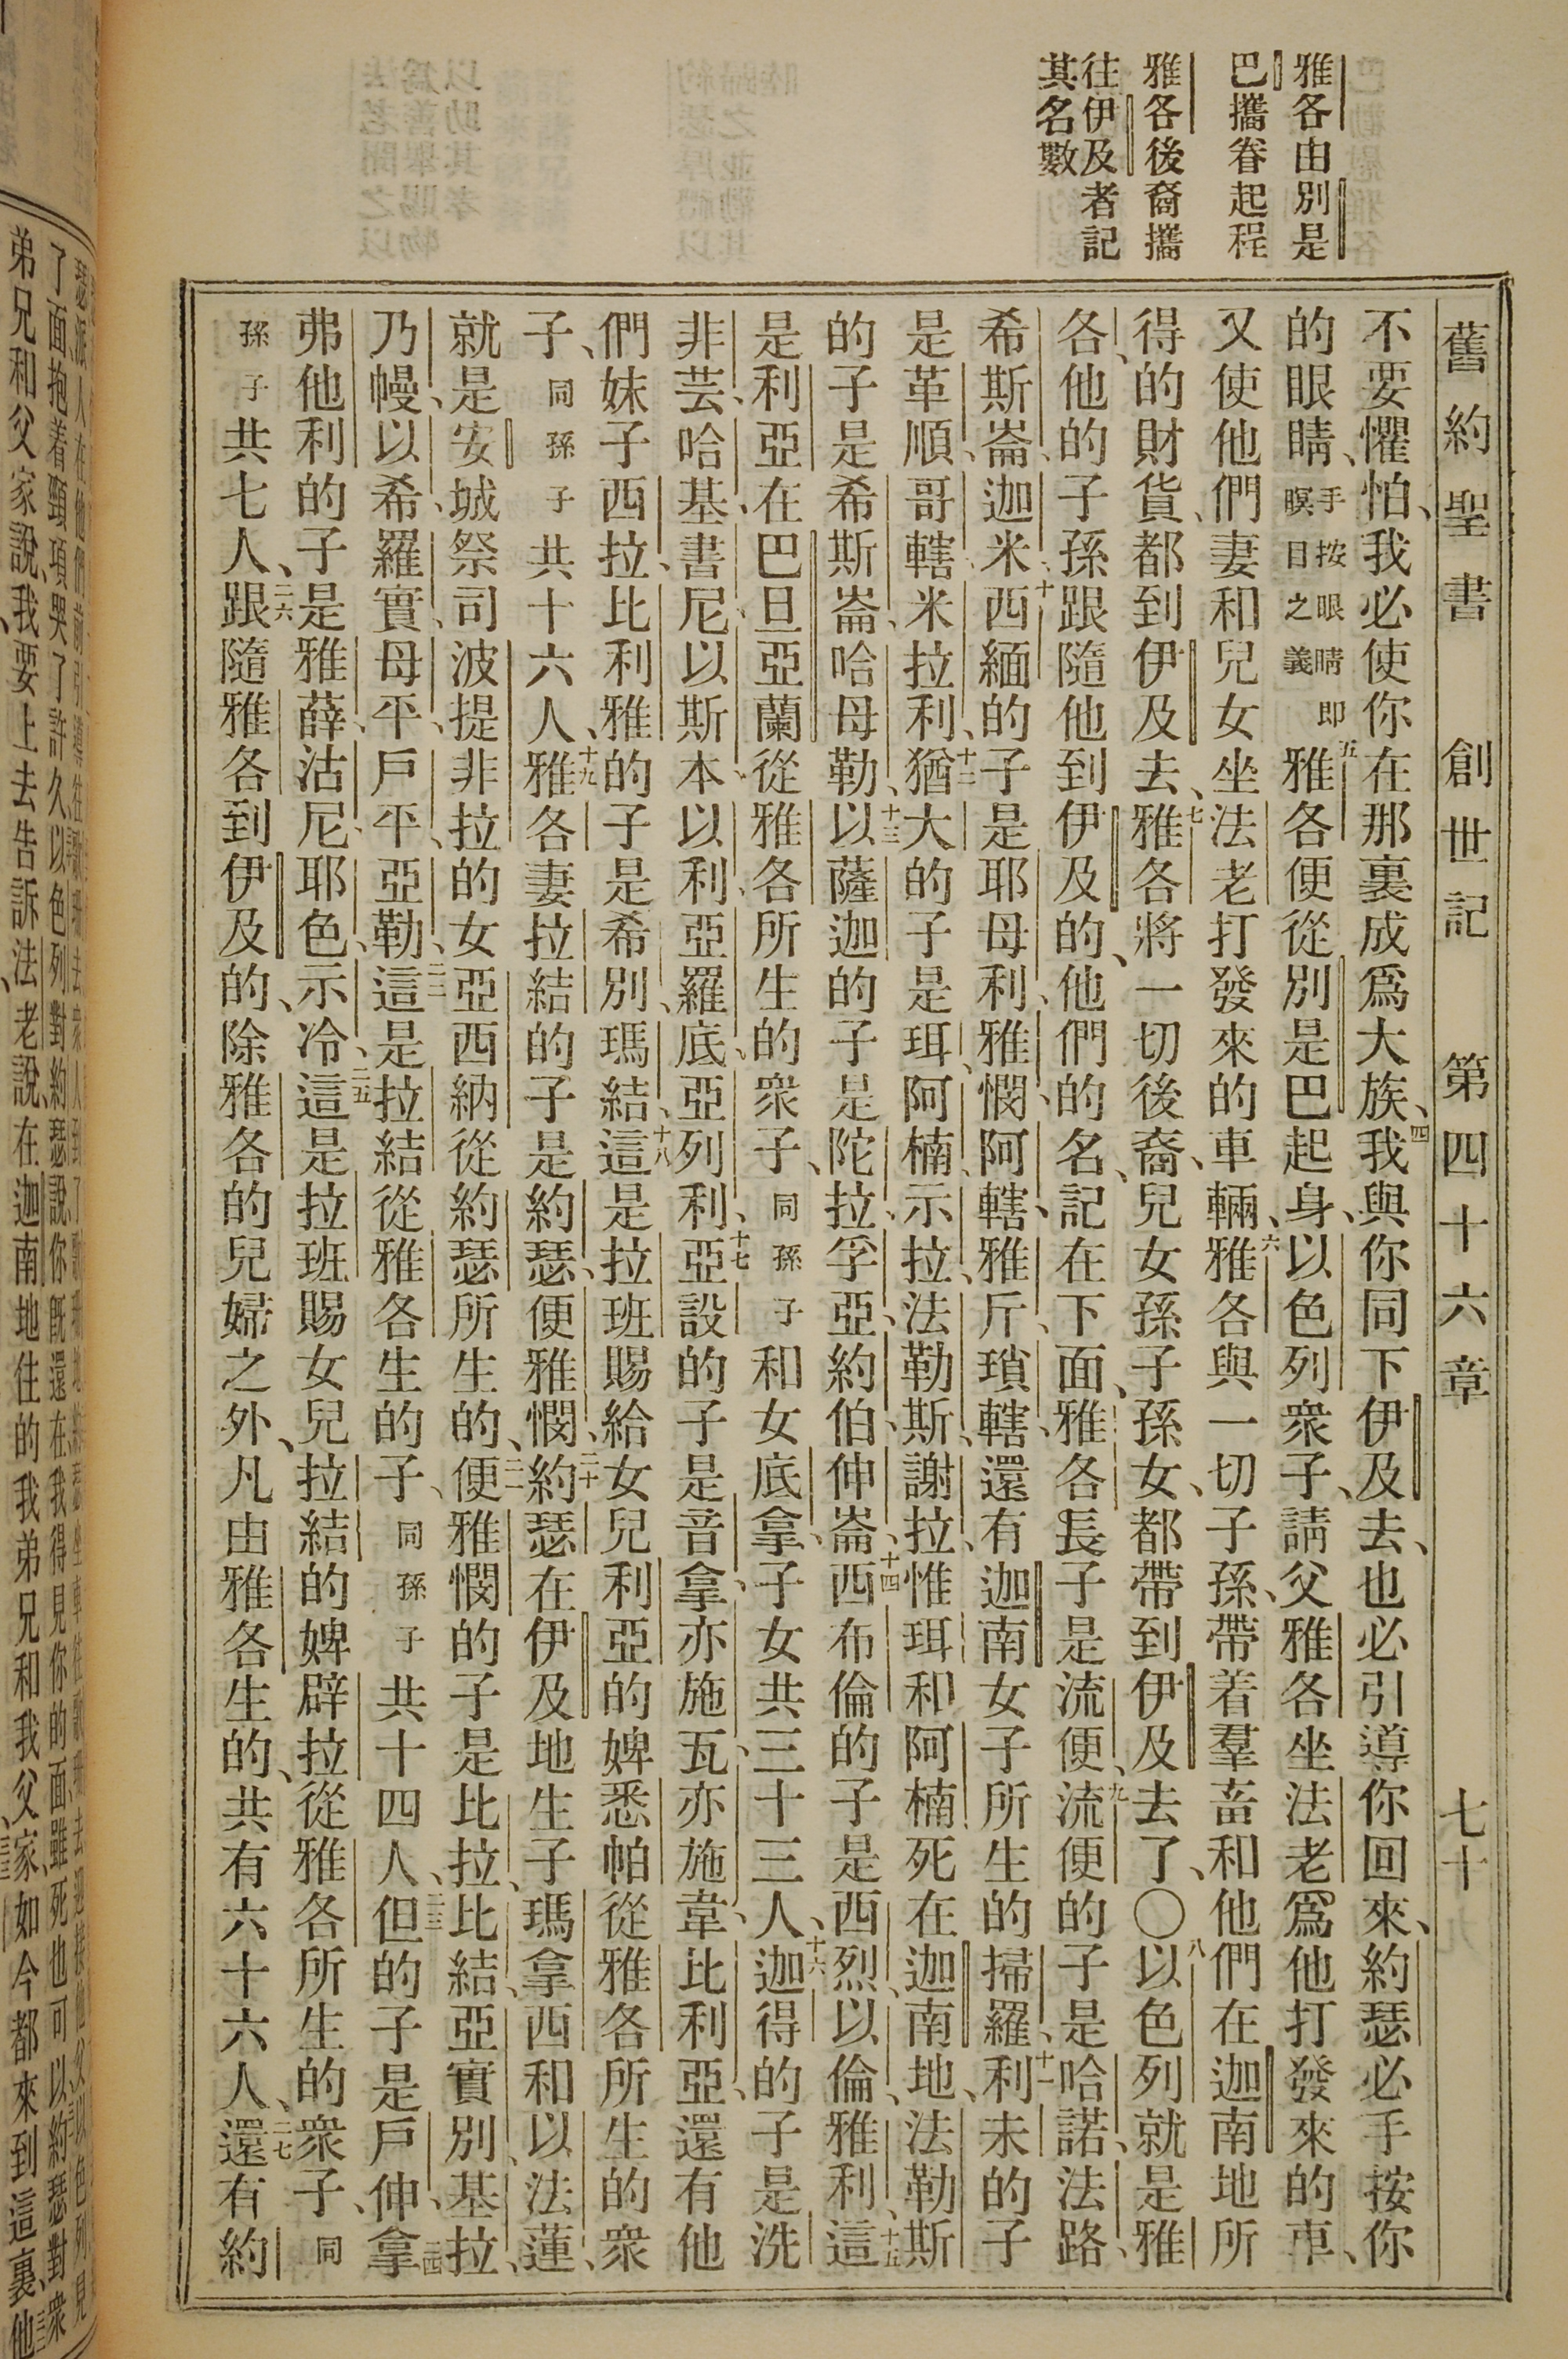 雅各由別是
巴攜眷起程
雅各後裔攜
往伊及者記
其名數
舊約聖書 創世記 第四十六章 七十
不要懼怕、我必使你在那裏成爲大族、四我與你同下伊及去、也必引導你回來、約瑟必手按你
的眼睛、手按眼睛即瞑目之義五雅各便從別是巴起身、以色列衆子、請父雅各坐法老爲他打發來的車、
又使他們妻和兒女坐法老打發來的車輛、六雅各與一切子孫、帶着羣畜和他們在迦南地所
得的財貨、都到伊及去、七雅各將一切後裔、兒女孫子孫女、都帶到伊及去了、〇八以色列就是雅
各、他的子孫跟隨他到伊及的、他們的名、記在下面、雅各長子是流便、九流便的子是哈諾、法路、
希斯崙、迦米、十西緬的子是耶母利、雅憫、阿轄、雅斤、瑣轄、還有迦南女子所生的掃羅、十一利未的子
是革順、哥轄、米拉利、十二猶大的子是珥、阿楠、示拉、法勒斯、謝拉、惟珥和阿楠死在迦南地、法勒斯
的子是希斯崙、哈母勒、十三以薩迦的子是陀拉、孚亞、約伯、伸崙、十四西布倫的子是西烈、以倫、雅利、十五這
是利亞在巴旦亞蘭從雅各所生的衆子、同孫子和女底拿、子女共三十三人、十六迦得的子是洗
非芸、哈基、書尼、以斯本、以利、亞羅底、亞列利、十七亞設的子是音拿、亦施瓦、亦施韋、比利亞、還有他
們妹子西拉、比利雅的子是希別、瑪結、十八這是拉班賜給女兒利亞的婢悉帕從雅各所生的衆
子、同孫子共十六人、十九雅各妻拉結的子是約瑟、便雅憫、二十約瑟在伊及地生子瑪拿西和以法蓮、
就是安城祭司波提非拉的女亞西納從約瑟所生的、二一便雅憫的子是比拉、比結、亞實別、基拉、
乃幔、以希、羅實、母平、戶平、亞勒、二二這是拉結從雅各生的子、同孫子共十四人、二三但的子是戶伸、二四拿
弗他利的子是雅薛、沽尼、耶色、示冷、二五這是拉班賜女兒拉結的婢辟拉從雅各所生的衆子、同
孫子共七人、二六跟隨雅各到伊及的、除雅各的兒婦之外、凡由雅各生的、共有六十六人、二七還有約
了面、抱着頸項哭了許久、以色列對約瑟說、你旣還在、我得見你的面、雖死也可以、約瑟對衆
弟兄和父家說、我要上去告訴法老說、在迦南地住的我弟兄和我父家、如今都來到這裏、他